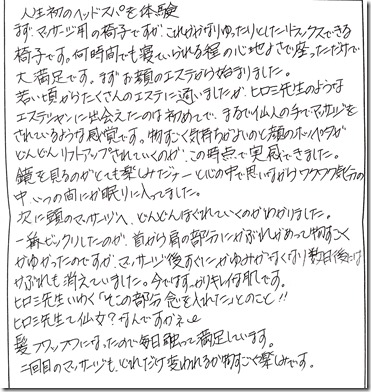 人生初のヘッドスパを体験
まず、マッサージ用の椅子ですが、これがかなりゆったりとしたリラックスできる
椅子です。何時間でも寝ていられる程の心地よさで座っただけで
大満足です。まずお顔のエステから始まりました。
若い頃からたくさんのエステに通いましたが、ヒロミ先生のような
エステシャンに出会えたのは初めてで、まるで仙人の手でマッサージを
されているような感覚です。物すごく気持ちがよいのと顔のホホイタが
どんどんリフトアップされていくのが、この時点で実感できました。
鏡を見るのがとても楽しみだナーと心の中で思いながらワクワク気分の
中、いつの間にか眠りに入ってました。
次に頭のマッサージへ、どんどんほぐれていくのがわかりました。
一番ビックリしたのが、首から肩の部分にかぶれがあって物すごく
かゆかったのですが、マッサージ後すぐにかゆみがなくなり数日後には
かぶれも消えていました。今ではすっかりキレイな肌です。
ヒロミ先生いわく「そこの部分念を入れた」とのこと!!
ヒロミ先生て仙女？なんですかネ
髪フワッフワになったので毎日触って満足しています。
二回目のマッサージも、どれだけ変われるか物すごく楽しみです。